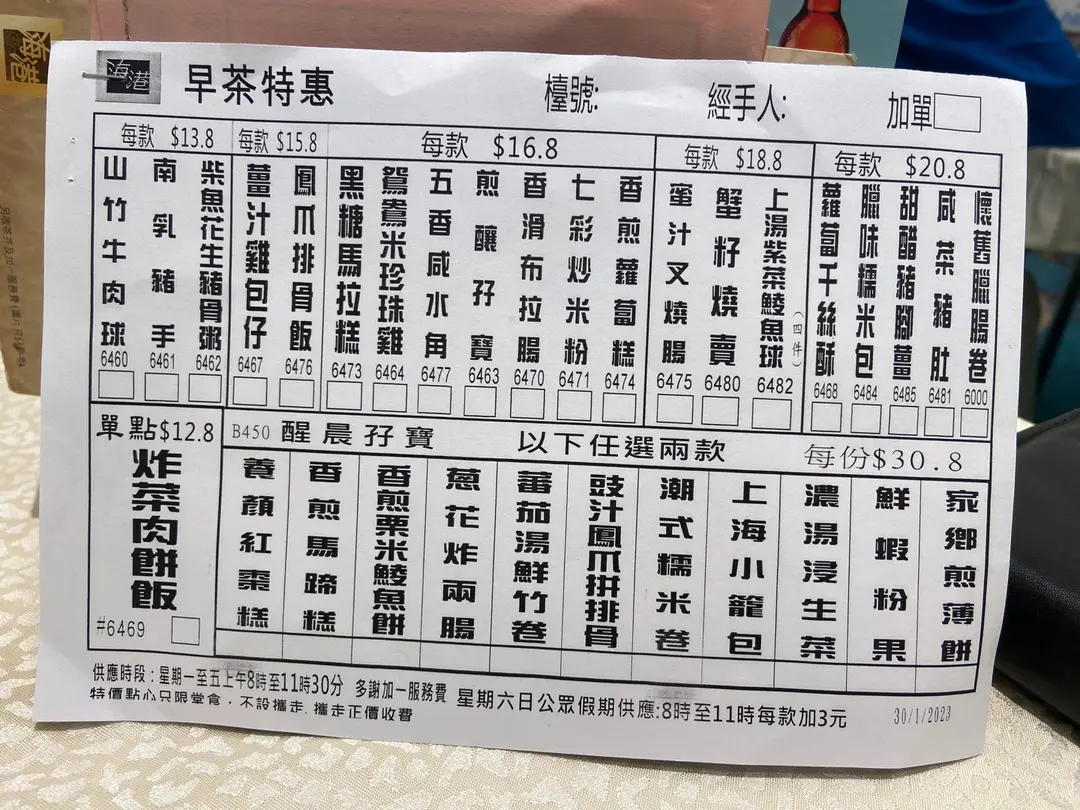 海港
海港
早茶特惠
檯號:
經手人:
加單
每款 $13.8
山竹牛肉球 6460
南乳豬手 6461
柴魚花生豬骨粥 6462
每款 $15.8
薑汁雞包仔 6467
鳳爪排骨飯 6476
每款 $16.8
黑糖馬拉糕 6473
鴛鴦米珍珠雞 6464
五香咸水角 6477
煎釀孖寶 6463
香滑布拉腸 6470
七彩炒米粉 6471
香煎蘿蔔糕 6474
每款 $18.8
蜜汁叉燒腸 6475
蟹籽燒賣 6480
上湯紫菜鯪魚球(四件) 6482
每款 $20.8
蘿蔔千絲酥 6468
臘味糯米包 6484
甜醋豬腳薑 6485
咸菜豬肚 6481
懷舊臘腸卷 6000
單點$12.8
炸菜肉餅飯
#6469
B450 醒晨孖寶 以下任選兩款 每份$30.8
養顏紅棗糕
香煎馬蹄糕
香煎粟米鯪魚餅
蔥花炸兩腸
蕃茄湯鮮竹卷
豉汁鳳爪拼排骨
潮式糯米卷
上海小籠包
濃湯浸生菜
鮮蝦粉果
家鄉煎薄餅
供應時段:星期一至五上午8時至11時30分 多謝加一服務費 星期六日公眾假期供應:8時至11時每款加3元 30/1/2023
特價點心只限堂食,不設攜走.攜走正價收費